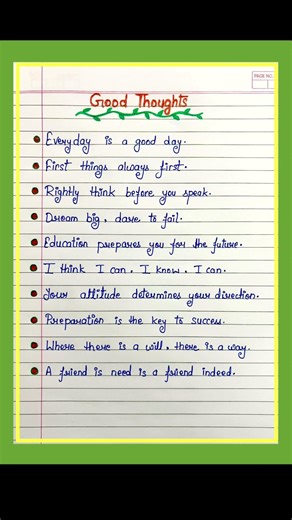 PAGE NO.
Good Thoughts
Everyday is a good day.
First things always first.
Rightly think before you speak.
Dream big, dare to fail.
Education prepares you for the future.
I think I can. I know, I can.
Your attitude determines your direction.
Preparation is the key to success.
Where there is a will, there is a way.
A friend is need is a friend indeed.